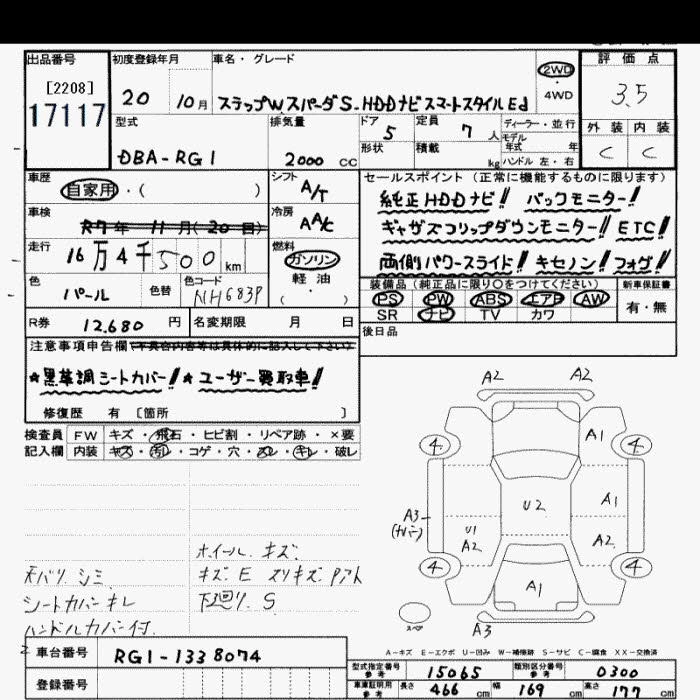 出品番号
[2208]
17117
初度登録年月
20 10月
車名・グレード
ステップW.スパーダS-HDDナビスマートスタイルEd
2WD
4WD
評価点
3.5
外装 内装
C C
型式
DBA-RG1
排気量
2000 cc
ドア 5
形状
定員 7 人
積載 kg
ディーラー・並行
モデル
年式 年
ハンドル 左・右
車歴
自家用・( )
シフト
A/T
車検
R7年 11月(20回)
冷房
AAC
走行
16万4千500km
燃料
ガソリン
軽油
( )
色
パール
色替
色コード
NH683P
R券 12,680 円
名変期限 月 日
セールスポイント(正常に機能するものに限ります)
純正HDDナビ! バックモニター!
ギャザズフリップダウンモニター! ETC!
両側パワースライド! キセノン! フォグ!
装備品(純正品に限り○をつけてください)
PS PW ABS エアB AW
SR ナビ TV カワ
新車保証書
有・無
後日品
注意事項申告欄(不具合内容等は具体的に記入して下さい)
★黒革調シートカバー! ★ユーザー買取車!
修復歴 有 [箇所 ]
検査員 FW キズ・飛石・ヒビ割・リペア跡・×要
記入欄 内装 キズ・汚レ・コゲ・穴・スレ・キレ・破レ
天バリ シミ
シートカバーキレ
ハンドルカバー付.
ホイール キズ
キズ E スリキズ Pアト
下廻り S
A2 A2
A1
4 4
U2
A1
A3
(カバー)
U1
A2
A2
4 4
A1
スペア
A3
A-キズ E-エクボ U-凹み W-補修跡 S-サビ C-腐食 XX-交換済
車台番号 RG1-1338074
登録番号
型式指定番号
参考
15065
類別区分番号
参考
0300
車車証明用
参考
長さ 466 cm
幅 169 cm
高さ 177 cm